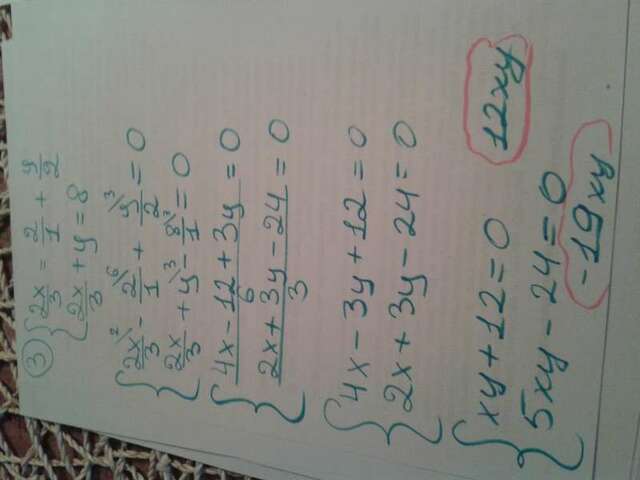 3) { 2x/3 = 2/1 + y/2
{ 2x/3 + y = 8
{ 2x/3 \2 - 2/1 \6 + y/2 \3 = 0
{ 2x/3 + y \3 - 8/1 \3 = 0
{ (4x - 12 + 3y)/6 = 0
{ (2x + 3y - 24)/3 = 0
{ 4x - 3y + 12 = 0
{ 2x + 3y - 24 = 0
{ xy + 12 = 0 12xy
{ 5xy - 24 = 0 -19xy